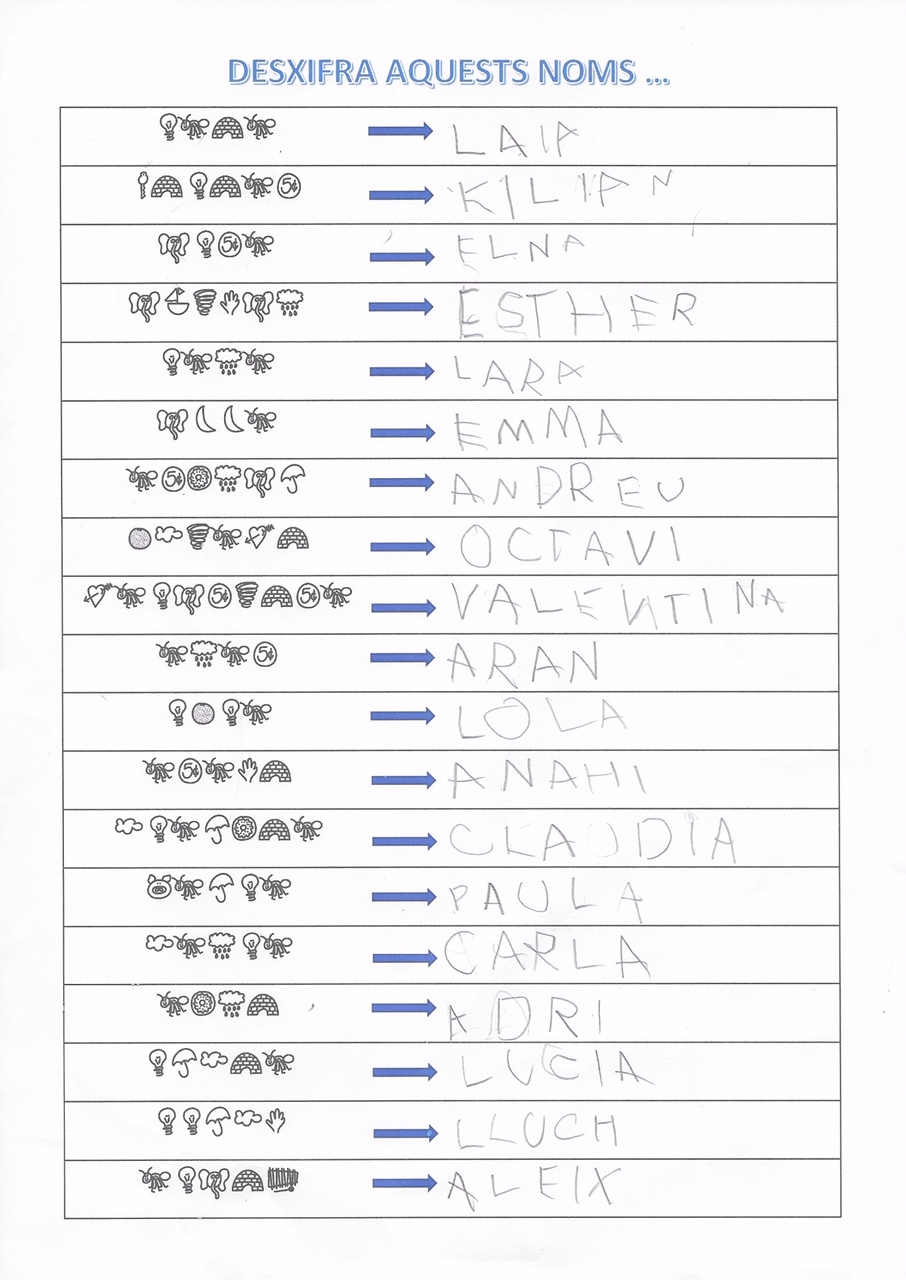 DESXIFRA AQUESTS NOMS ...
LAIA
KILIAN
ELNA
ESTHER
LARA
EMMA
ANDREU
OCTAVI
VALENTINA
ARAN
LOLA
ANAHI
CLAUDIA
PAULA
CARLA
ADRI
LUCIA
LLUCH
ALEIX